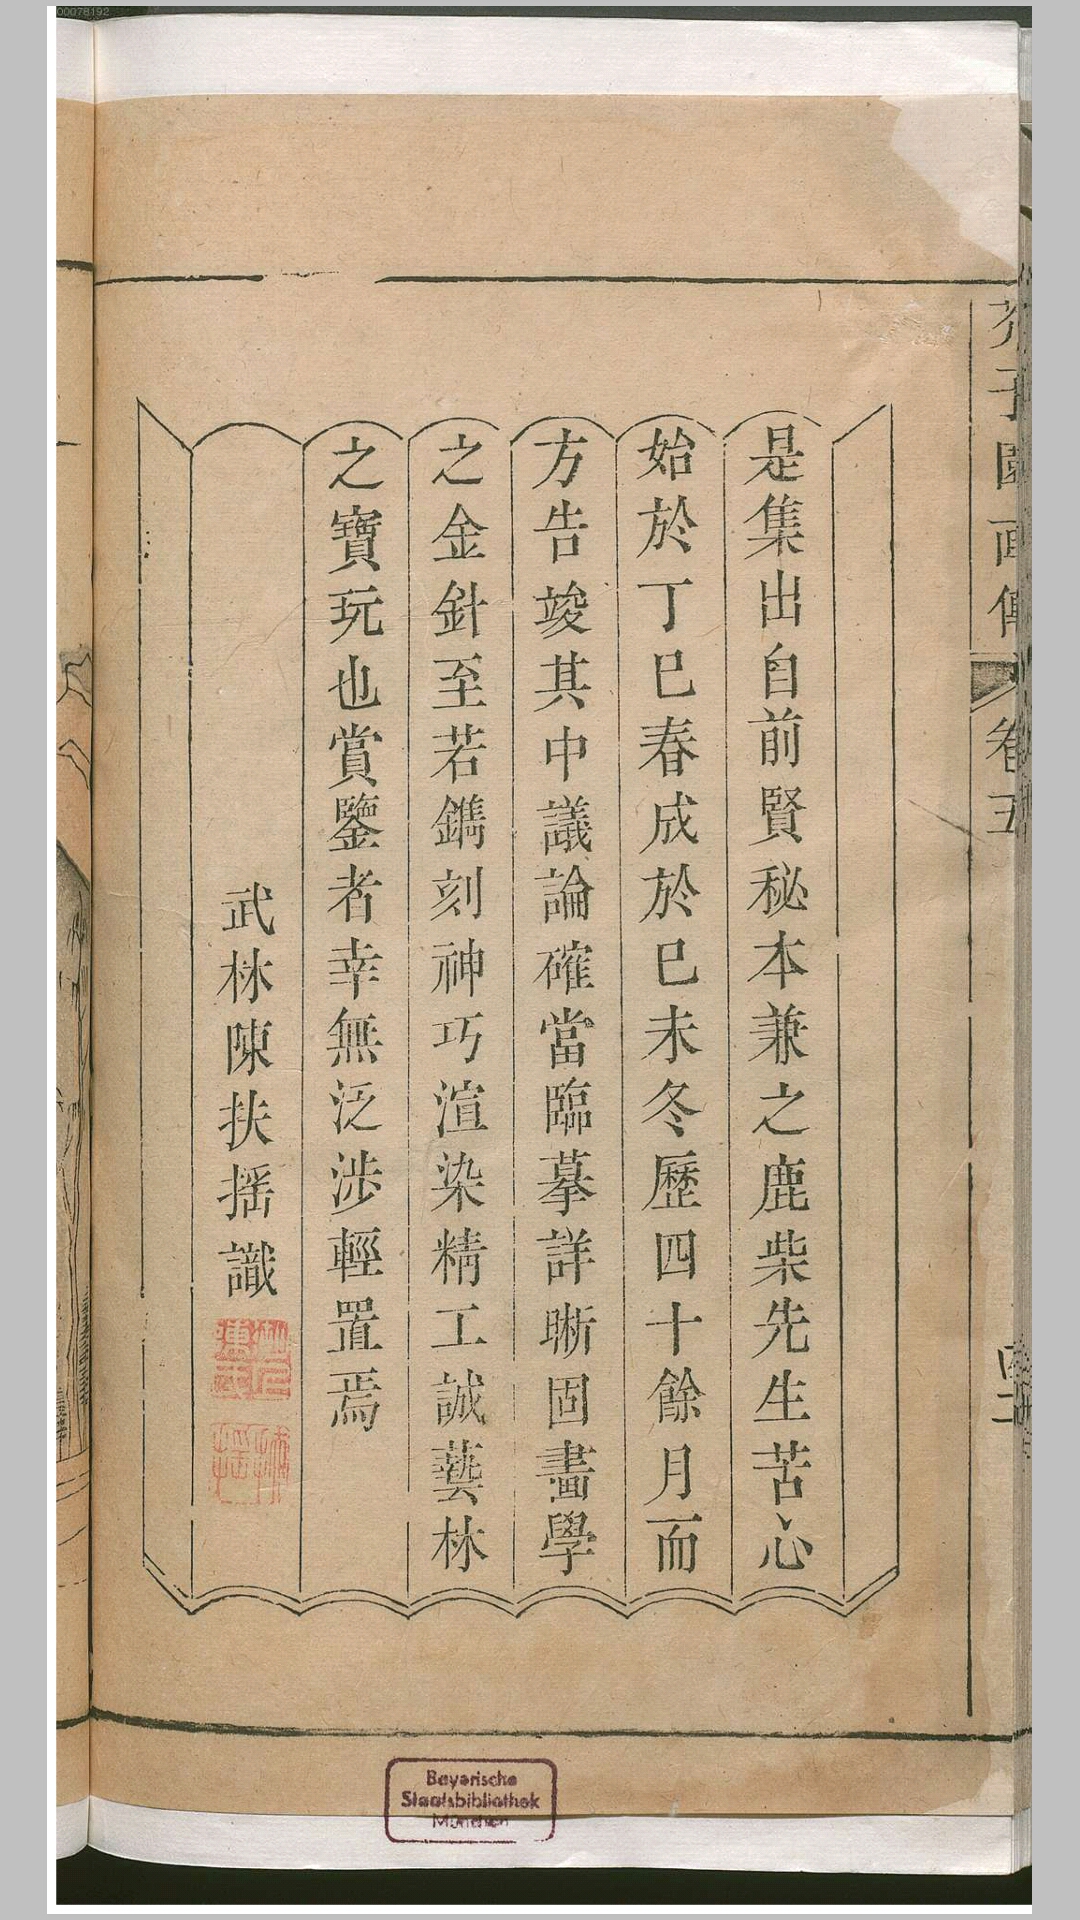 是集出自前賢秘本兼之鹿柴先生苦心
始於丁巳春成於巳未冬歷四十餘月而
方告竣其中議論確當臨摹詳晰固畫學
之金針至若鐫刻神巧渲染精工誠藝林
之寶玩也賞鑒者幸無泛涉輕置焉
武林陳扶摇識
芥子園画傳 卷五
Bayerische
Staatsbibliothek
München
00078192